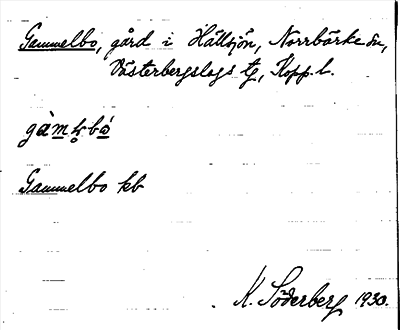 Gammelbo, gård i Hällsjön, Norrbärke sn,
Västerbergslags tg, Kopp. l.
Gammelbo kb
K. Söderberg 1930.